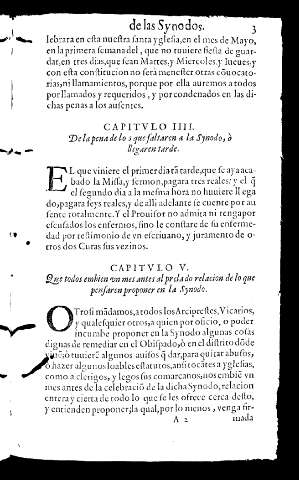 de las Synodos. 3
lebrara en esta nuestra santa yglesia, en el mes de Mayo,
en la primera semana del, que no tuuiere fiesta de guar-
dar, en tres dias, que sean Martes, y Miercoles, y Iueues, y
con esta constitucion no será menester otras cōuocato-
rias, ni llamamientos, porque por ella auremos a todos
por llamados y requeridos, y por condenados en las di-
chas penas a los ausentes.
CAPITVLO IIII.
De la pena de los que faltaren a la Synodo, ò
llegaren tarde.
EL que viniere el primer dia tā tarde, que se aya aca-
bado la Missa, y sermon, pagara tres reales: y el q̃
el segundo dia a la mesma hora no huuiere llega
do, pagara seys reales, y de alli adelante se cuente por au
sente totalmente. Y el Prouisor no admita ni tenga por
escusados los enfermos, sino le constare de su enferme-
dad por testimonio de vn escriuano, y juramento de o-
tros dos Curas sus vezinos.
CAPITVLO V.
Que todos embien vn mes antes al prelado relacion de lo que
pensaren proponer en la Synodo.
OTrosi mādamos, a todos los Arciprestes, Vicarios,
y qualesquier otros, a quien por oficio, o poder
incumbe proponer en la Synodo algunas cosas
dignas de remediar en el Obispado, ò en el distrito dōde
tuuierē algunos auisos q̃ dar, para quitar abusos,
ò hazer algunos loables estatutos, assi tocātes a yglesias,
como a clerigos, y legos sus comarcanos, nos embiē vn
mes antes de la celebraciō de la dicha Synodo, relacion
entera y cierta de todo lo que se les ofrece cerca desto,
y entienden proponer; la qual, por lo menos, venga fir-
A 2 mada